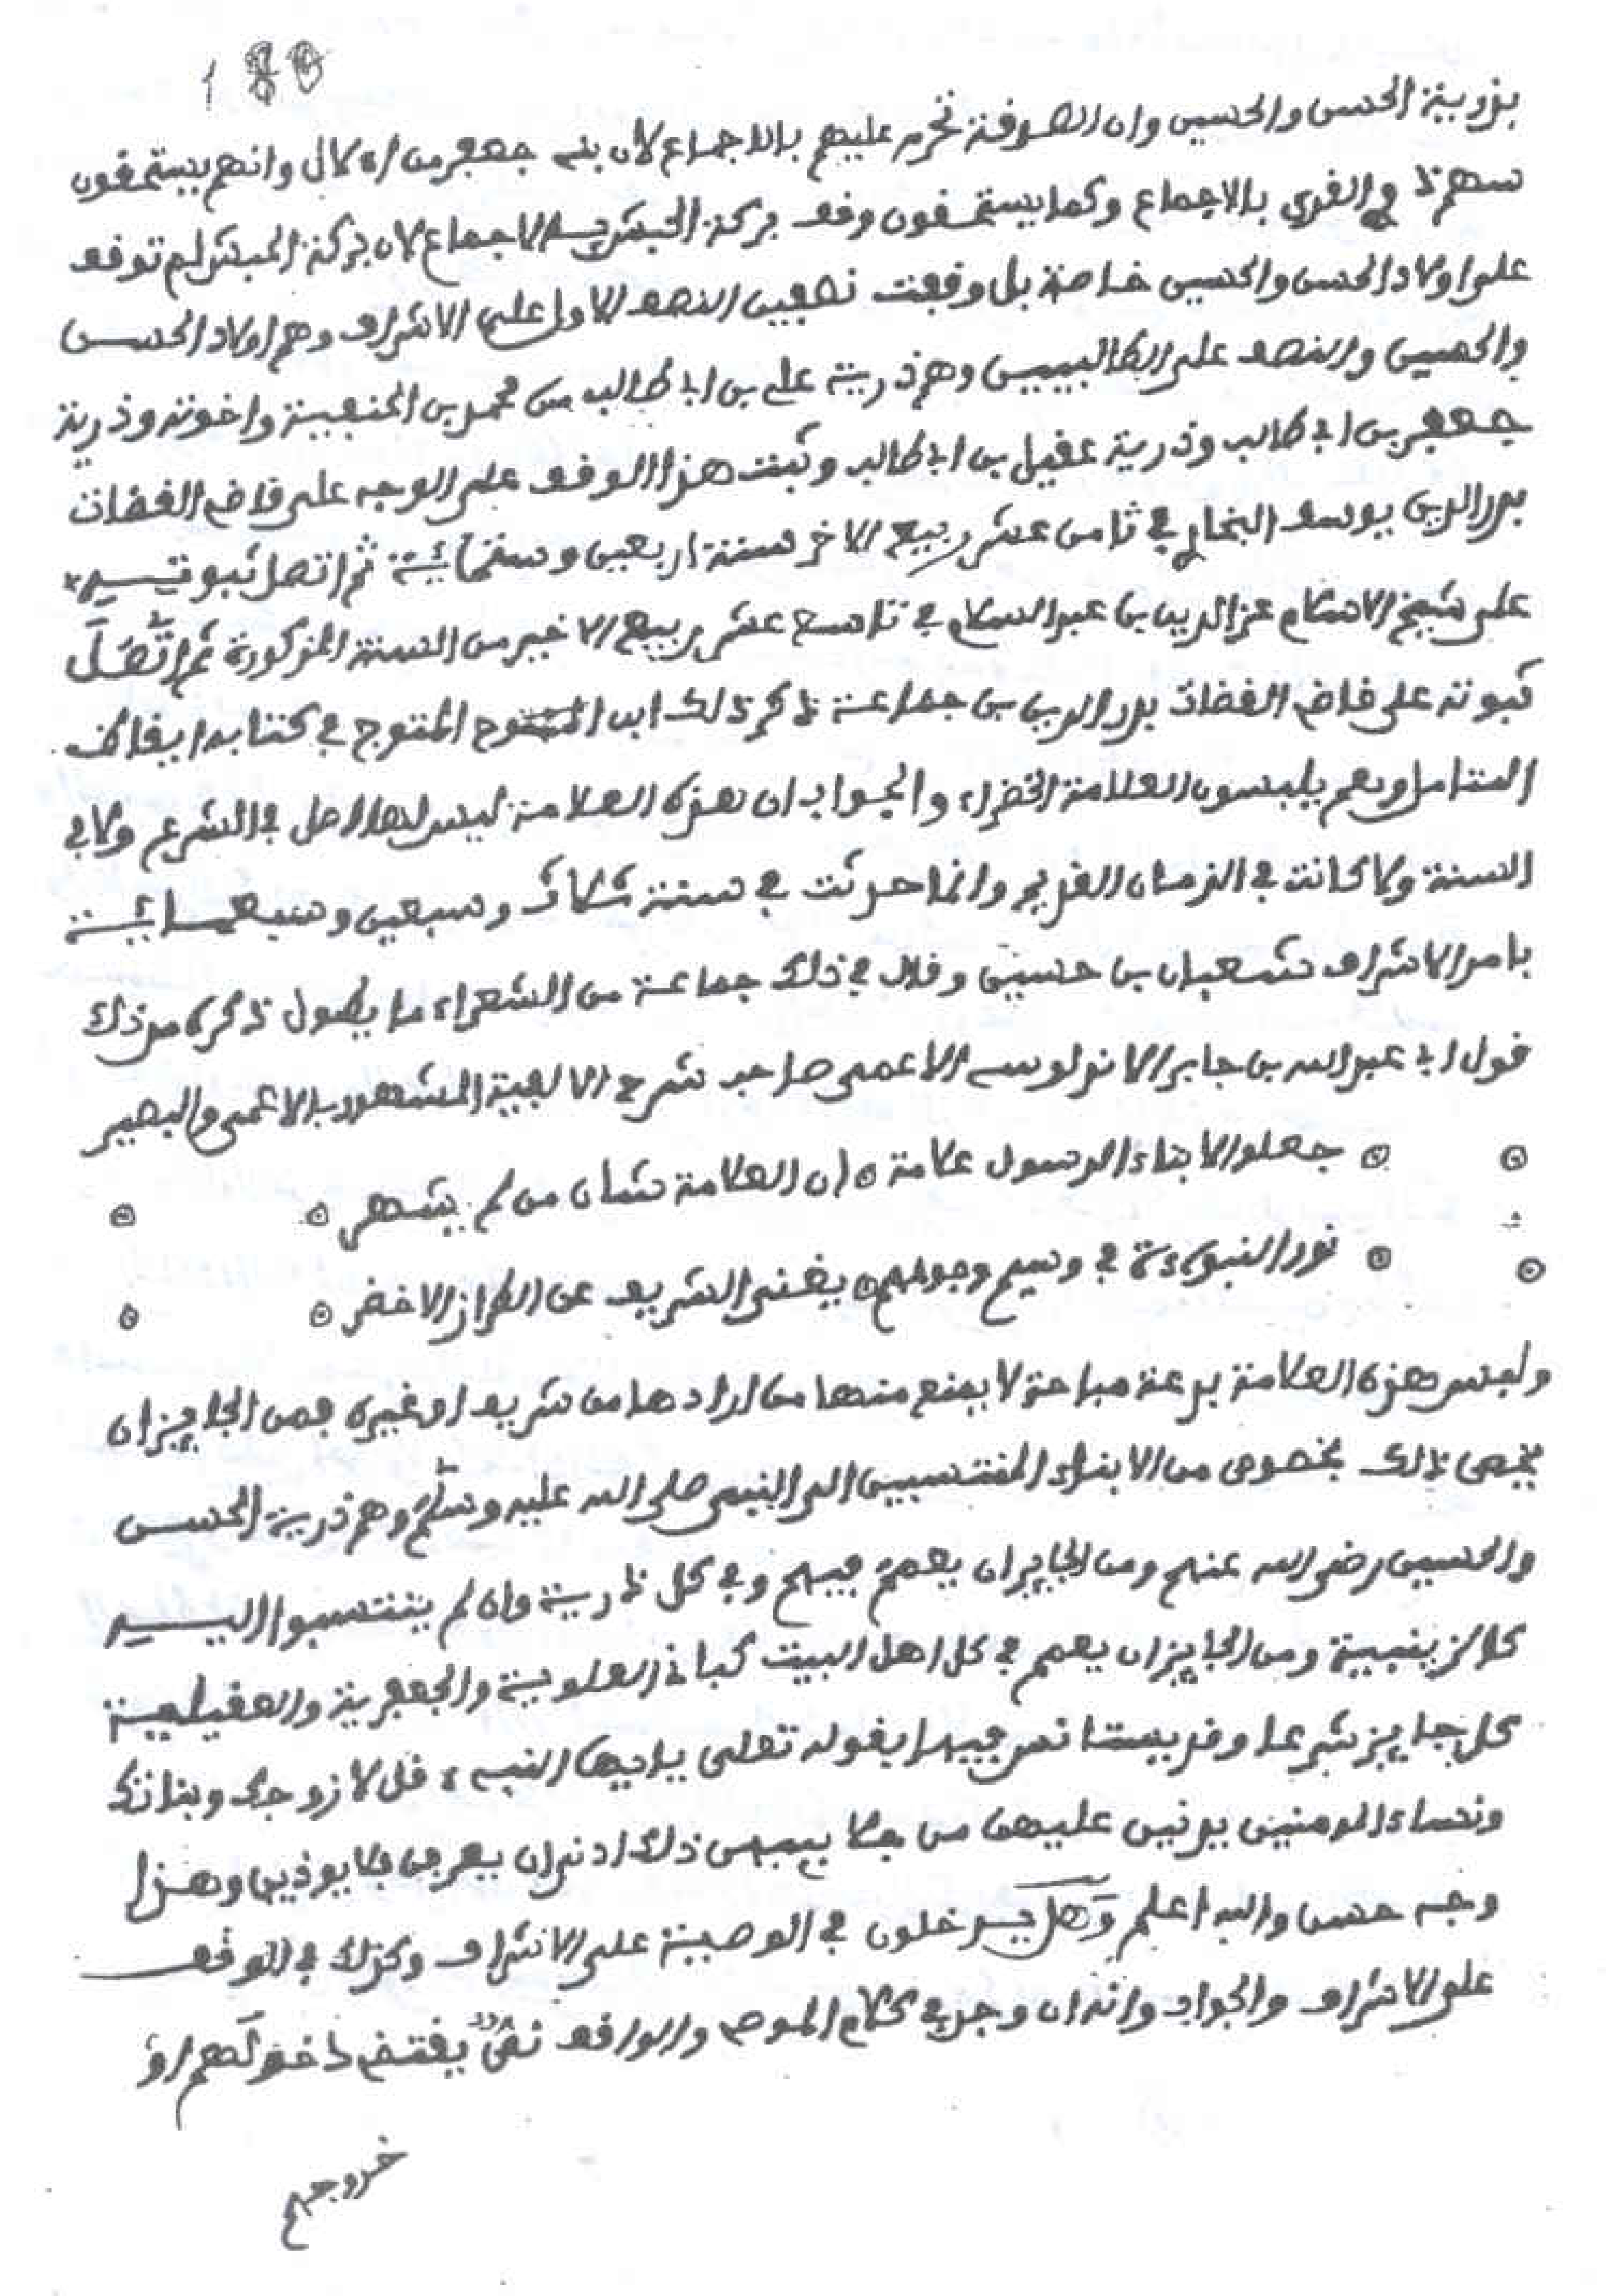 بزريية الحسن والحسين وان الصدفة تحرم عليهم بالاجماع لان بنى جعفر من الال وانهم يستحفون
سهم ذوالفربى بالاجماع وكما يستحفون وفف بركة الحبش بالاجماع لان بركة الحبش لم توفف
على اولاد الحسن والحسين خاصة بل وفعت نصفين النصف الاول على الاشراف وهم اولاد الحسن
والحسين والنصف على الطالبيين وهم ذرية على بن ابى طالب من محمد بن الحنفية واخوته وذرية
جعفر بن ابى طالب وذرية عفيل بن ابى طالب وثبت هذا الوفف على الوجه على فاضى الفضات
بدر الدين يوسف البخارى فى ثامن عشر ربيع الاخر سنة اربعين وستمائة ثم اتصل ثبوتيه
على شيخ الاسلام عز الدين بن عبد السلام فى تاسع عشر ربيع الاخير من السنة المذكورة ثم اتصل
ثبوته على فاضى الفضات بدر الدين بن جماعة ذكر ذلك ابن المتوج فى كتابه ايفاظ
المتامل وهم يلبسون العلامة الخضراء والجواب ان هذه العلامة ليس لها اصل فى الشرع ولا فى
السنة ولا كانت فى الزمان الفديم وانما حدثت فى سنة ثلاث وسبعين وسبعمائة
بامر الاشراف شعبان بن حسين وفال فى ذلك جماعة من الشعراء ما يطول ذكره من ذلك
فول ابى عبد الله بن جابر الاندلوسى الاعمى صاحب شرح الالفية المشهور بالاعمى والبصير
جعلوا لابناء الرسول علامة ان العلامة شان من لم يشهر
نور النبوءة فى وسيم وجوههم يغنى الشريف عن الطراز الاخضر
ولبس هذه العلامة بدعة مباحة لا يمنع منها من ارادها من شريف او غيره فمن الجايز ان
يخص ذلك بخصوص من الابناء المنتسبين الى النبى صلى الله عليه وسلم وهم ذرية الحسن
والحسين رضى الله عنهم ومن الجايز ان يعمم فيهم وفى كل ذرية وان لم ينتسبوا اليه
كالزينبية ومن الجايز ان يعمم فى كل اهل البيت كبافى العلوية والجعفرية والعفيلية
كل جايز شرعا وفد يستانس فيها بفوله تعلى يا ايها النبىء فل لازوجك وبناتك
ونساء المومنين يدنين عليهن من جلابيبهن ذلك ادنى ان يعرفن فلا يوذين وهذا
وجه حسن والله اعلم وهل يدخلون فى الوصية على الاشراف وكذلك فى الوفف
على الاشراف والجواب وانه ان وجد فى كلام الموصى والوافف نص يفتضى دخولهم او
خروجهم